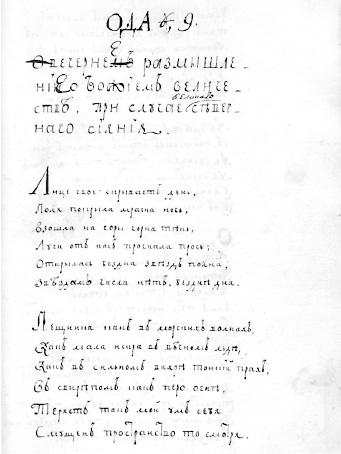 ОДА 9.
Вечернеѣ размышле-
ніѣ о Божіемъ величе-
ствѣ, при случаѣ великаго сѣвер-
наго сіянія.
Лице свое скрываетъ день,
Поля покрыла мрачна ночь,
Взошла на горы чорна тѣнь,
Лучи отъ насъ прогнала прочь;
Открылась бездна звѣздъ полна,
Звѣздамъ числа нѣтъ, безднѣ дна.
Песчинка какъ въ морскихъ волнахъ,
Какъ мала искра въ вѣчномъ льдѣ,
Какъ въ сильномъ вихрѣ тонкій прахъ,
Въ свирѣпомъ какъ перо огнѣ,
Теряетъ такъ мой умъ себя
Смущенъ пространство то смотря.